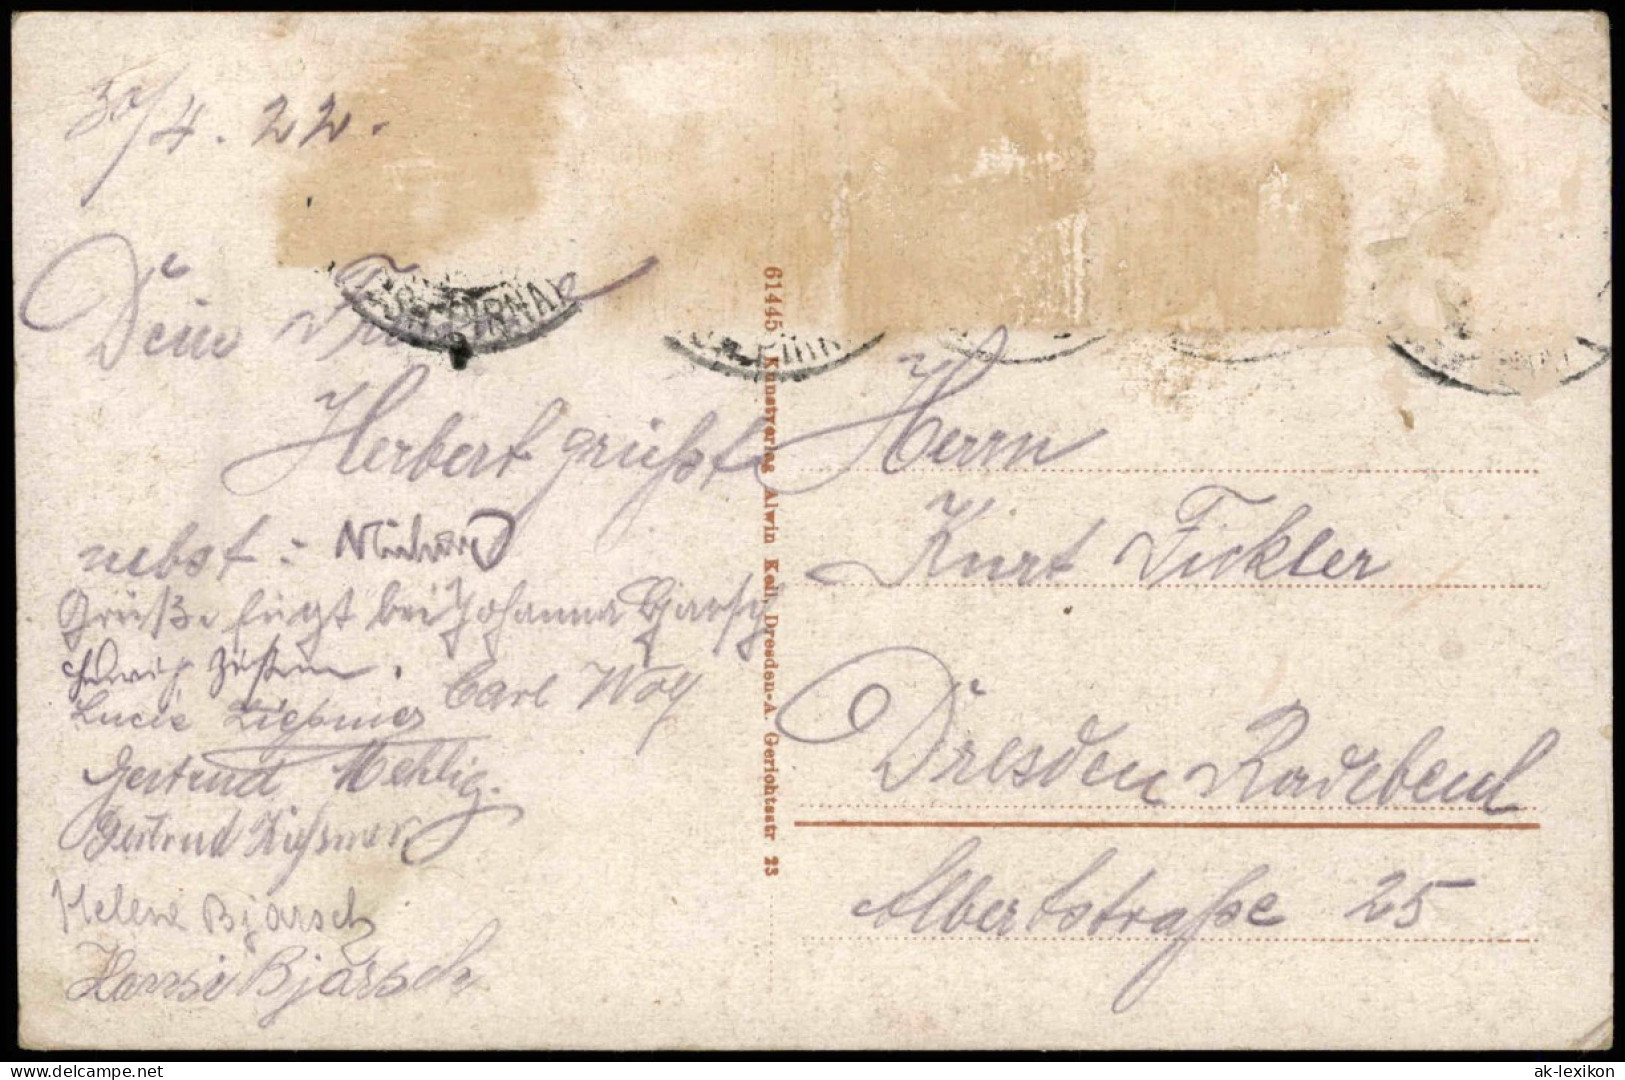 30/4. 22.
Dein
Herbert grüßt
nebst:
Grüße fügt bei Johanna Bjarsch
Carl Wolf
Lucie Zießmer
Gertrud Mehlig.
Gertrud Zießmer
Helene Bjarsch
Hansi Bjarsch
61445 Kunstverlag Alwin Keil, Dresden-A. Gerichtsstr 23
Herrn
Kurt Fickler
Dresden Radebeul
Albertstraße 25
ak-ansichtskarten.de
ak-lexikon